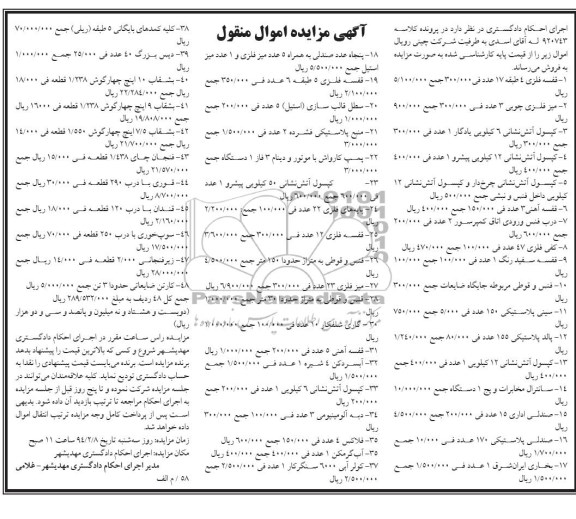 آگهی مزایده اموال منقول
اجرای احکام دادگستری در نظر دارد در پرونده کلاسه
۹۲۰۷۴۳ له آقای اسدی به طرفیت شرکت چینی رویال
اموال زیر را از قیمت پایه کارشناسی شده به صورت مزایده
به فروش می‌رساند.
۱- قفسه فلزی ۴ طبقه ۱۷ عدد فی ۳۰۰/۰۰۰ جمع ۵/۱۰۰/۰۰۰
ریال
۲- میز فلزی چوبی ۳ عدد فی ۳۰۰/۰۰۰ جمع ۹۰۰/۰۰۰
ریال
۳- کپسول آتش‌نشانی ۶ کیلویی یادگار ۱ عدد فی ۳۰۰/۰۰۰
جمع ۳۰۰/۰۰۰ ریال
۴- کپسول آتش‌نشانی ۱۲ کیلویی پیشرو ۱ عدد فی ۴۰۰/۰۰۰
جمع ۴۰۰/۰۰۰ ریال
۵- کپسول آتش‌نشانی چرخ‌دار و کپسول آتش‌نشانی ۱۲
کیلویی داخل فنس و نبشی جمع ۵/۰۰۰/۰۰۰ ریال
۶- قفسه آهنی ۳ عدد فی ۱۵۰/۰۰۰ جمع ۴۰۰/۰۰۰ ریال
۷- درب فنس ورودی اتاق کمپرسور ۲ عدد فی ۲۰۰/۰۰۰
جمع ۶۰۰/۰۰۰ ریال
۸- کفی فلزی ۴۷ عدد فی ۱۰۰/۰۰۰ جمع ۴۷۰/۰۰۰ ریال
۹- قفسه سفید رنگ ۱ عدد فی ۱۰۰/۰۰۰ جمع ۱۰۰/۰۰۰
ریال
۱۰- فنس و قوطی مربوطه جایگاه ضایعات جمع ۳۰۰/۰۰۰
ریال
۱۱- سینی پلاستیکی ۱۵۰ عدد فی ۵/۰۰۰ جمع ۷۵۰/۰۰۰
ریال
۱۲- پالد پلاستیکی ۱۵۵ عدد فی ۸۰/۰۰۰ جمع ۱/۲۴۰/۰۰۰
ریال
۱۳- کپسول آتش‌نشانی ۱۲ کیلویی ۱ عدد فی ۴۰۰/۰۰۰ جمع
۴۰۰/۰۰۰ ریال
۱۴- سانترال مخابرات و پچ ۱ دستگاه جمع ۱۰/۰۰۰/۰۰۰
ریال
۱۵- صندلی اداری ۱۵ عدد فی ۲۰۰/۰۰۰ جمع ۴/۵۰۰/۰۰۰
ریال
۱۶- صندلی پلاستیکی ۱۷۰ عدد فی ۱۰/۰۰۰ جمع
۱/۷۰۰/۰۰۰ ریال
۱۷- بخاری ایران‌شرق ۱ عدد فی ۱/۵۰۰/۰۰۰ جمع
۱/۵۰۰/۰۰۰ ریال
۱۸- پنجاه عدد صندلی به همراه ۵ عدد میز فلزی و ۱ عدد میز
استیل جمع ۵/۵۰۰/۰۰۰ ریال
۱۹- قفسه فلزی ۵ طبقه ۶ عدد فی ۳۵۰/۰۰۰ جمع
۲/۱۰۰/۰۰۰ ریال
۲۰- سطل قالب سازی (استیل) ۵ عدد فی ۲۰۰/۰۰۰ جمع
۱/۰۰۰/۰۰۰ ریال
۲۱- منبع پلاستیکی فشرده ۲ عدد فی ۱/۵۰۰/۰۰۰ جمع
۳/۰۰۰/۰۰۰ ریال
۲۲- پمپ کارواش با موتور و دینام ۳ فاز ۱ دستگاه جمع
۳/۰۰۰/۰۰۰ ریال
۲۳- کپسول آتش‌نشانی ۵۰ کیلویی پیشرو ۱ عدد
فی ۶۰۰/۰۰۰ جمع ۶۰۰/۰۰۰ ریال
۲۴- پایه‌های فلزی ۲۲ عدد فی ۱۰۰/۰۰۰ جمع ۲/۲۰۰/۰۰۰
ریال
۲۵- قفسه فلزی ۱۲ عدد فی ۳۰۰/۰۰۰ جمع ۳/۶۰۰/۰۰۰
ریال
۲۶- فنس و قوطی به متراژ حدودا ۱۵۰ متر جمع ۴/۵۰۰/۰۰۰
ریال
۲۷- میز فلزی ۲۳ عدد فی ۳۰۰/۰۰۰ جمع ۶/۹۰۰/۰۰۰ ریال
۲۸- فنس و قوطی به متراژ حدودا ۳۰ متر جمع
ریال
۳۰- گاری شلفکار ۲۰ عدد فی ۱۰۰/۰۰۰ جمع
ریال
۳۱- قفسه آهنی ۵ عدد فی ۲۰۰/۰۰۰ جمع ۱/۰۰۰/۰۰۰ ریال
۳۲- آبسردکن ۴ شیره ۱ عدد فی ۱/۵۰۰/۰۰۰ جمع
۱/۵۰۰/۰۰۰ ریال
۳۳- کپسول آتش‌نشانی ۶ کیلویی ۱ عدد فی ۲۰۰/۰۰۰ جمع
۲۰۰/۰۰۰ ریال
۳۴- دبه آلومینیومی ۳ عدد فی ۱۰۰/۰۰۰ جمع ۳۰۰/۰۰۰
ریال
۳۵- فلاکس ۴ عدد فی ۱۵۰/۰۰۰ جمع ۶۰۰/۰۰۰ ریال
۳۶- آب‌گرمکن ۱ عدد فی ۴۰۰/۰۰۰ جمع ۴۰۰/۰۰۰ ریال
۳۷- کولر آبی ۶۰۰۰ سنگرکار ۱ عدد فی ۲/۵۰۰/۰۰۰ جمع
۲/۵۰۰/۰۰۰ ریال
۳۸- کلیه کمدهای بایگانی ۵ طبقه (ریلی) جمع ۷۰/۰۰۰/۰۰۰
ریال
۳۹- دیس بزرگ ۴۰ عدد فی ۲۵/۰۰۰ جمع ۱/۰۰۰/۰۰۰
ریال
۴۰- بشقاب ۱۰ اینچ چهارگوش ۱/۲۳۸ قطعه فی ۱۸/۰۰۰
ریال جمع ۲۲/۲۸۴/۰۰۰ ریال
۴۱- بشقاب ۹ اینچ چهارگوش ۱/۲۳۸ قطعه فی ۱۶۰۰۰ ریال
جمع ۱۹/۸۰۸/۰۰۰ ریال
۴۲- بشقاب ۷/۵ اینچ چهارگوش ۱/۵۵۰ قطعه فی ۱۴/۰۰۰
ریال جمع ۲۱/۷۰۰/۰۰۰ ریال
۴۳- فنجان چای ۱/۴۳۸ قطعه فی ۱۵/۰۰۰ ریال جمع
۲۱/۵۷۰/۰۰۰ ریال
۴۴- قوری با درب ۲۹۰ قطعه فی ۳۰/۰۰۰ ریال جمع
۸/۷۰۰/۰۰۰ ریال
۴۵- قندان با درب ۱۲۰ قطعه فی ۱۸/۰۰۰ ریال جمع
۲/۱۶۰/۰۰۰ ریال
۴۶- سوپ‌خوری با درب ۲۵۰ قطعه فی ۷۰/۰۰۰ ریال جمع
۱۷/۵۰۰/۰۰۰ ریال
۴۷- زیرفنجانی ۲/۰۰۰ قطعه فی ۱۴/۰۰۰ ریال جمع
۲۸/۰۰۰/۰۰۰ ریال
۴۸- کارتن ضایعاتی حدودا ۳ تن جمع ۵/۰۰۰/۰۰۰ ریال
جمع کل ۴۸ ردیف به مبلغ ۲۸۹/۵۳۲/۰۰۰ ریال
(دویست و هشتاد و نه میلیون و پانصد و سی و دو هزار
ریال)
مزایده راس ساعت مقرر در اجرای احکام دادگستری
مهدیشهر شروع و کسی که بالاترین قیمت را پیشنهاد بدهد
برنده مزایده است. برنده می‌بایست قیمت پیشنهادی را نقدا به
حساب دادگستری تودیع نماید. کلیه علاقه‌مندان می‌توانند در
جلسه مزایده شرکت نموده و تا پنج روز قبل از جلسه مزایده
به اجرای احکام مراجعه تا ترتیب بازدید آن داده شود. بدیهی
است پس از پرداخت کامل وجه مزایده ترتیب انتقال اموال
داده خواهد شد
زمان مزایده: روز سه‌شنبه تاریخ ۹۴/۲/۸ ساعت ۱۱ صبح
مکان مزایده: اجرای احکام دادگستری مهدیشهر
مدیر اجرای احکام دادگستری مهدیشهر - غلامی
۵۸ / م الف